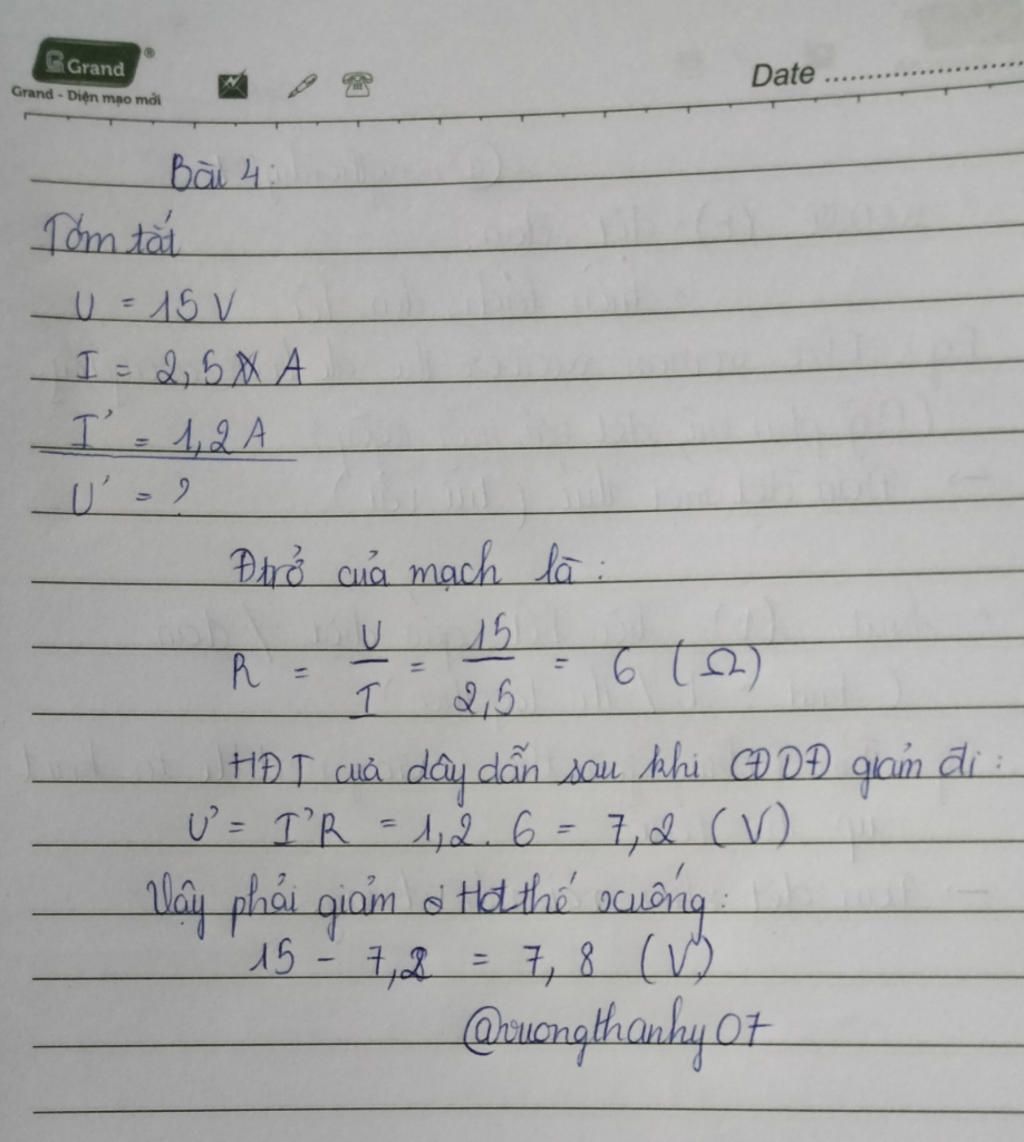 Grand®
Grand - Diện mạo mới
Date
Bài 4:
Tóm tắt
U = 15 V
I = 2,5 A
I' = 1,2 A
U' = ?
Đtrở của mạch là :
R = U/I = 15/2,5 = 6 (Ω)
HĐT của dây dẫn sau khi CĐDĐ giảm đi :
U' = I'R = 1,2 . 6 = 7,2 (V)
Vậy phải giảm Hđthế xuống :
15 - 7,2 = 7,8 (V)
@vuongthanhy07